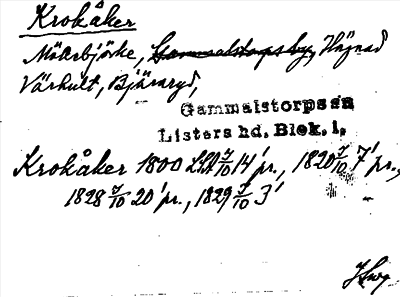 Krokåker
Mölarbjörke, Gammalstorpsby, Hägnad
Värhult, Bjäraryd,
Gammalstorps sn
Listers hd. Blek. l.
Krokåker 1800 LSA 7/10 14' pr., 1820 7/10 7' pr.,
1828 7/10 20' pr., 1829 7/10 3'